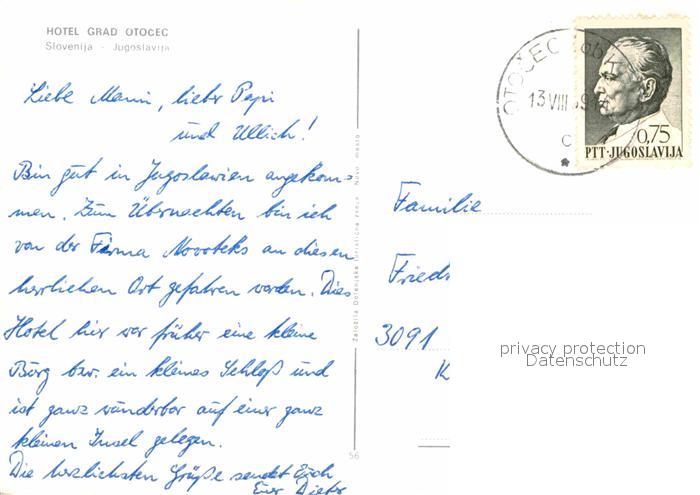 HOTEL GRAD OTOCEC
Slovenija - Jugoslavija
Liebe Mami, lieber Papi
und Ullich!
Bin gut in Jugoslawien angekom-
men. Zum Übernachten bin ich
von der Firma Novoteks an diesen
herrlichen Ort gefahren worden. Dies
Hotel hier war früher eine kleine
Burg bzw. ein kleines Schloß und
ist ganz wunderbar auf einer ganz
kleinen Insel gelegen.
Die herzlichsten Grüße sendet Euch
Euer Dieter
Založila Dolenjska turistična zveza Novo mesto
56
OTOČEC
13 VIII 69
0,75
PTT-JUGOSLAVIJA
Familie
Friedr
3091
K
privacy protection
Datenschutz